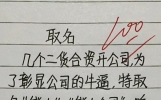 取名
100
几个二货合资开公司,为
了彰显公司的牛逼,特取